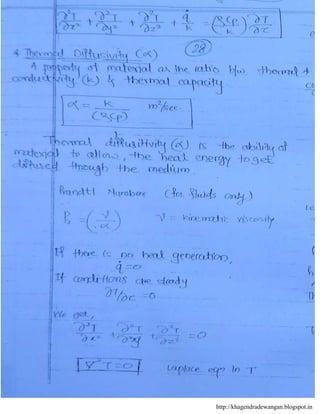 ∂²T/∂x² + ∂²T/∂y² + ∂²T/∂z² + q̇/k = (ρCp/k) ∂T/∂τ
28
* Thermal Diffusivity (α)
A property of material as the ratio b/w thermal
conductivity (k) & thermal capacity
α = k/(ρCp) m²/sec.
Thermal diffusitivity (α) is the ability of
material to allow, the heat energy to get
difused through the medium.
Prandtl Number (for fluids only)
Pr = (ν/α) ν = kinematic viscosity
If there is no heat generation,
q̇ = 0
If conditions are steady
∂T/∂τ = 0
We get,
∂²T/∂x² + ∂²T/∂y² + ∂²T/∂z² = 0
∇²T = 0 Laplace eqn in T
http://khagendradewangan.blogspot.in